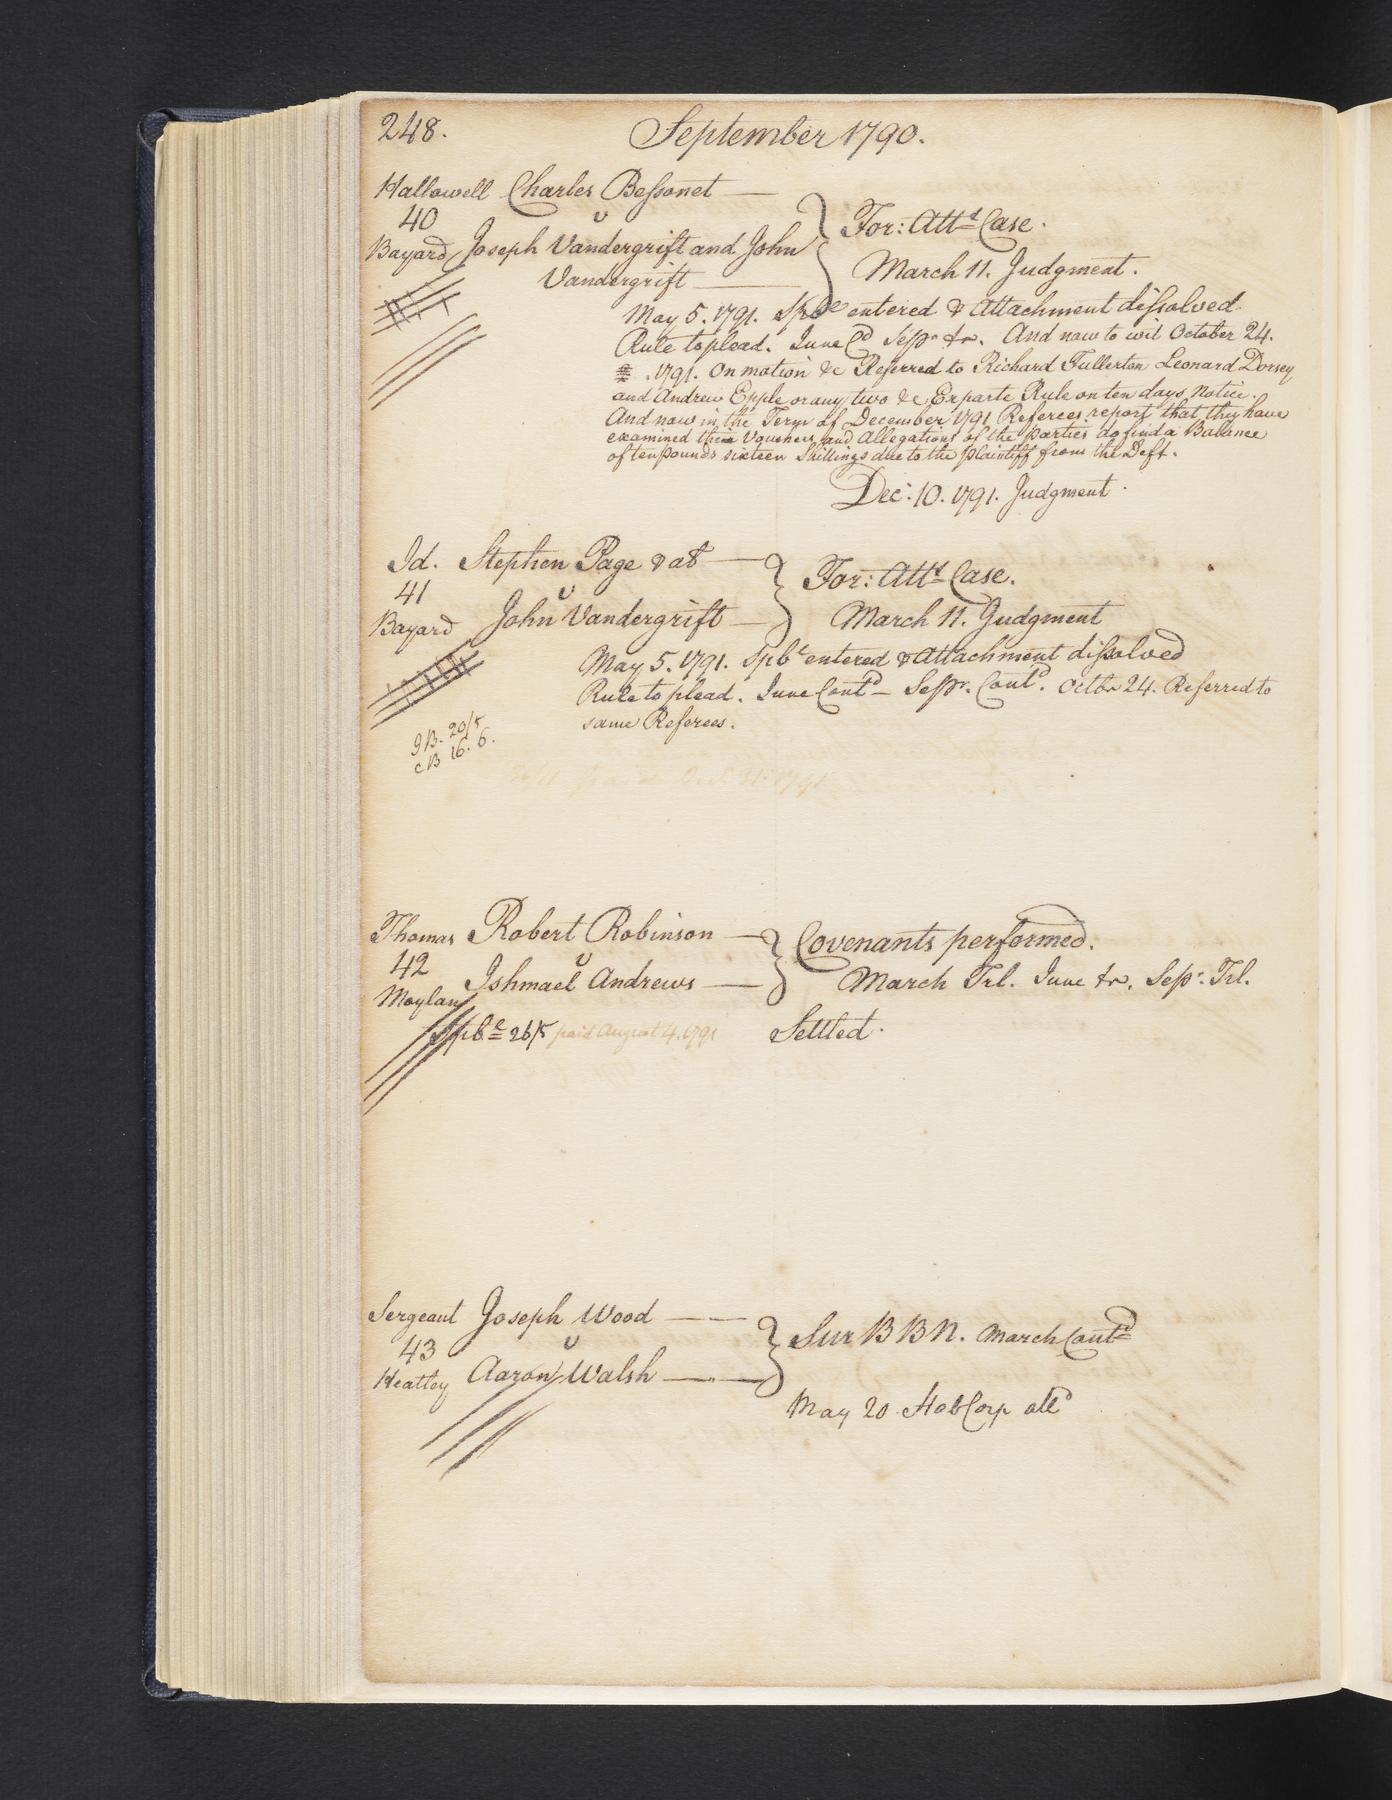 248.
September 1790.
Hallowell Charles Beſsonet
40 v
Bayard Joseph Vandergrift and John
Vandergrift
For: Attd Case.
March 11. Judgment.
May 5. 1791. Spbe entered & Attachment diſsolved.
Rule to plead. June Cd Sepr &r. And now to wit October 24.
1791. On motion &c Referred to Richard Fullerton Leonard Dorsey
and Andrew Epple or any two &c Exparte Rule on ten days Notice.
And now in the Term of December 1791 Referees report that they have
examined their Vouchers and Allegations of the parties do find a Ballance
of ten pounds sixteen Shillings due to the plaintiff from the Deft.
Dec: 10. 1791. Judgment.
Id. Stephen Page & al
41 v
Bayard John Vandergrift
For: Attd Case.
March 11. Judgment
May 5. 1791. Spbe entered & Attachment diſsolved
Rule to plead. June Contd – Sepr. Contd. Octbr 24. Referred to
same Referees.
9B. 20/5
cB 16. 6.
Thomas Robert Robinson
42 v
Moylan Ishmael Andrews
Covenants performed.
March Trl. June &r. Sepr: Trl.
Spbe 26/5 paid August 4. 1791
Settled.
Sergeant Joseph Wood
43 v
Heatley Aaron Walsh
Sur B B N. March Contd
May 20 Hab Corp alld